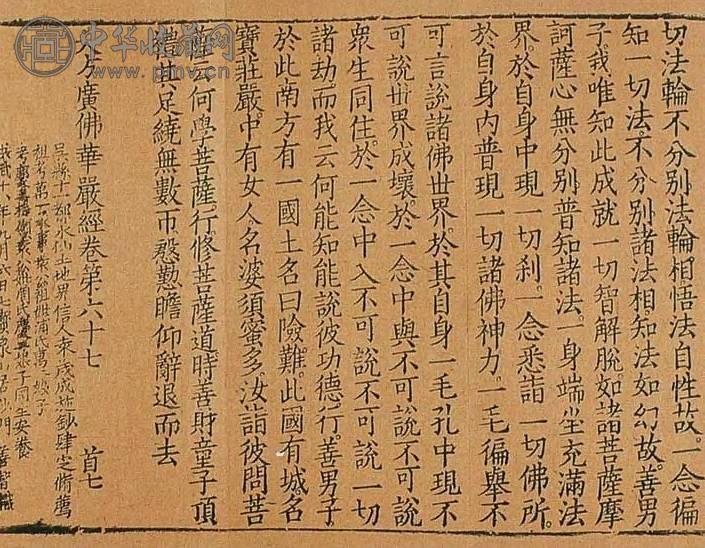 切法輪不分別法輪相。悟法自性故。一念徧
知一切法。不分別諸法相。知法如幻故。善男
子。我唯知此成就一切智解脫。如諸菩薩摩
訶薩心無分別普知諸法。一身端坐充滿法
界。於自身中現一切刹。一念悉詣一切佛所。
於自身內普現一切諸佛神力。一毛徧舉不
可言說諸佛世界。於其自身一毛孔中現不
可說世界成壞。於一念中與不可說不可說
衆生同住。於一念中入不可說不可說一切
諸劫。而我云何能知能說彼功德行。善男子。
於此南方有一國土。名曰險難。此國有城。名
寶莊嚴。中有女人。名婆須蜜多。汝詣彼問菩
薩云何學菩薩行。修菩薩道。時善財童子頂
禮其足繞無數帀慇懃瞻仰辭退而去
大方廣佛華嚴經卷第六十七 首七
吳縣十一都水仙土地界信人朱成施鈔肆定脩薦
中华收藏网
www.pmv.cn